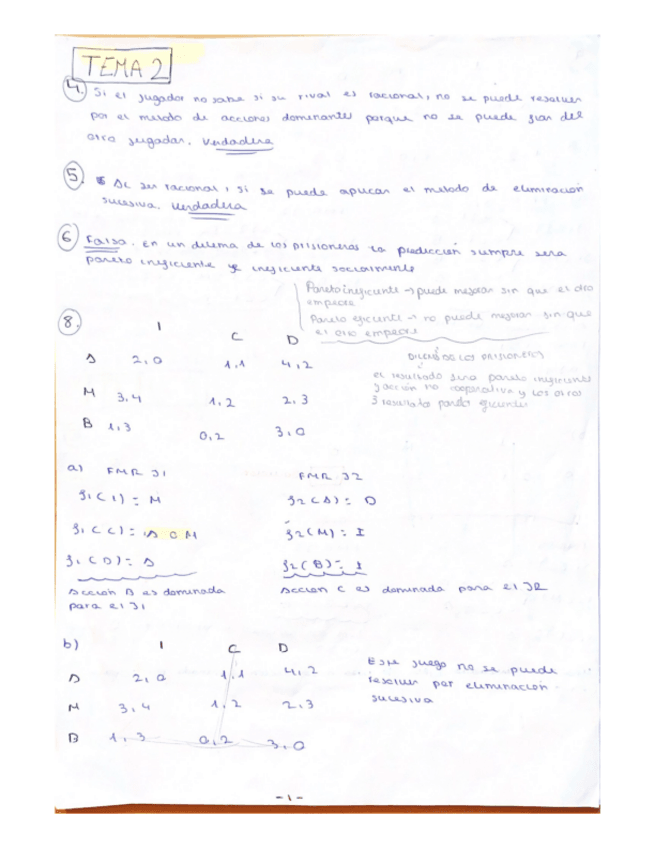 TEMA 2
4. Si el jugador no sabe si su rival es racional, no se puede resolver
por el metodo de acciones dominantes porque no se puede fiar del
otro jugador. Verdadera
5. Al ser racional, si se puede aplicar el metodo de eliminación
sucesiva. Verdadera
6 Falso. En un dilema de los prisioneros la predicción siempre sera
pareto ineficiente e ineficiente socialmente
Pareto ineficiente → puede mejorar sin que el otro
empeore
Pareto eficiente → no puede mejorar sin que
el otro empeore
8. I C D
A 2,0 1,1 4,2
M 3,4 1,2 2,3
B 1,3 0,2 3,0
DILEMA DE LOS PRISIONEROS
el resultado sera pareto ineficiente
y acción no cooperativa y los otros
3 resultados pareto eficientes
a) FMR J1 FMR J2
J1(I) = M J2(A) = D
J1(C) = A o M J2(M) = I
J1(D) = A J2(B) = I
Accion B es dominada
para el J1
Accion C es dominada para el J2
b) I C D
A 2,0 1,1 4,2
M 3,4 1,2 2,3
B 1,3 0,2 3,0
Este juego no se puede
resolver por eliminacion
sucesiva
-1-